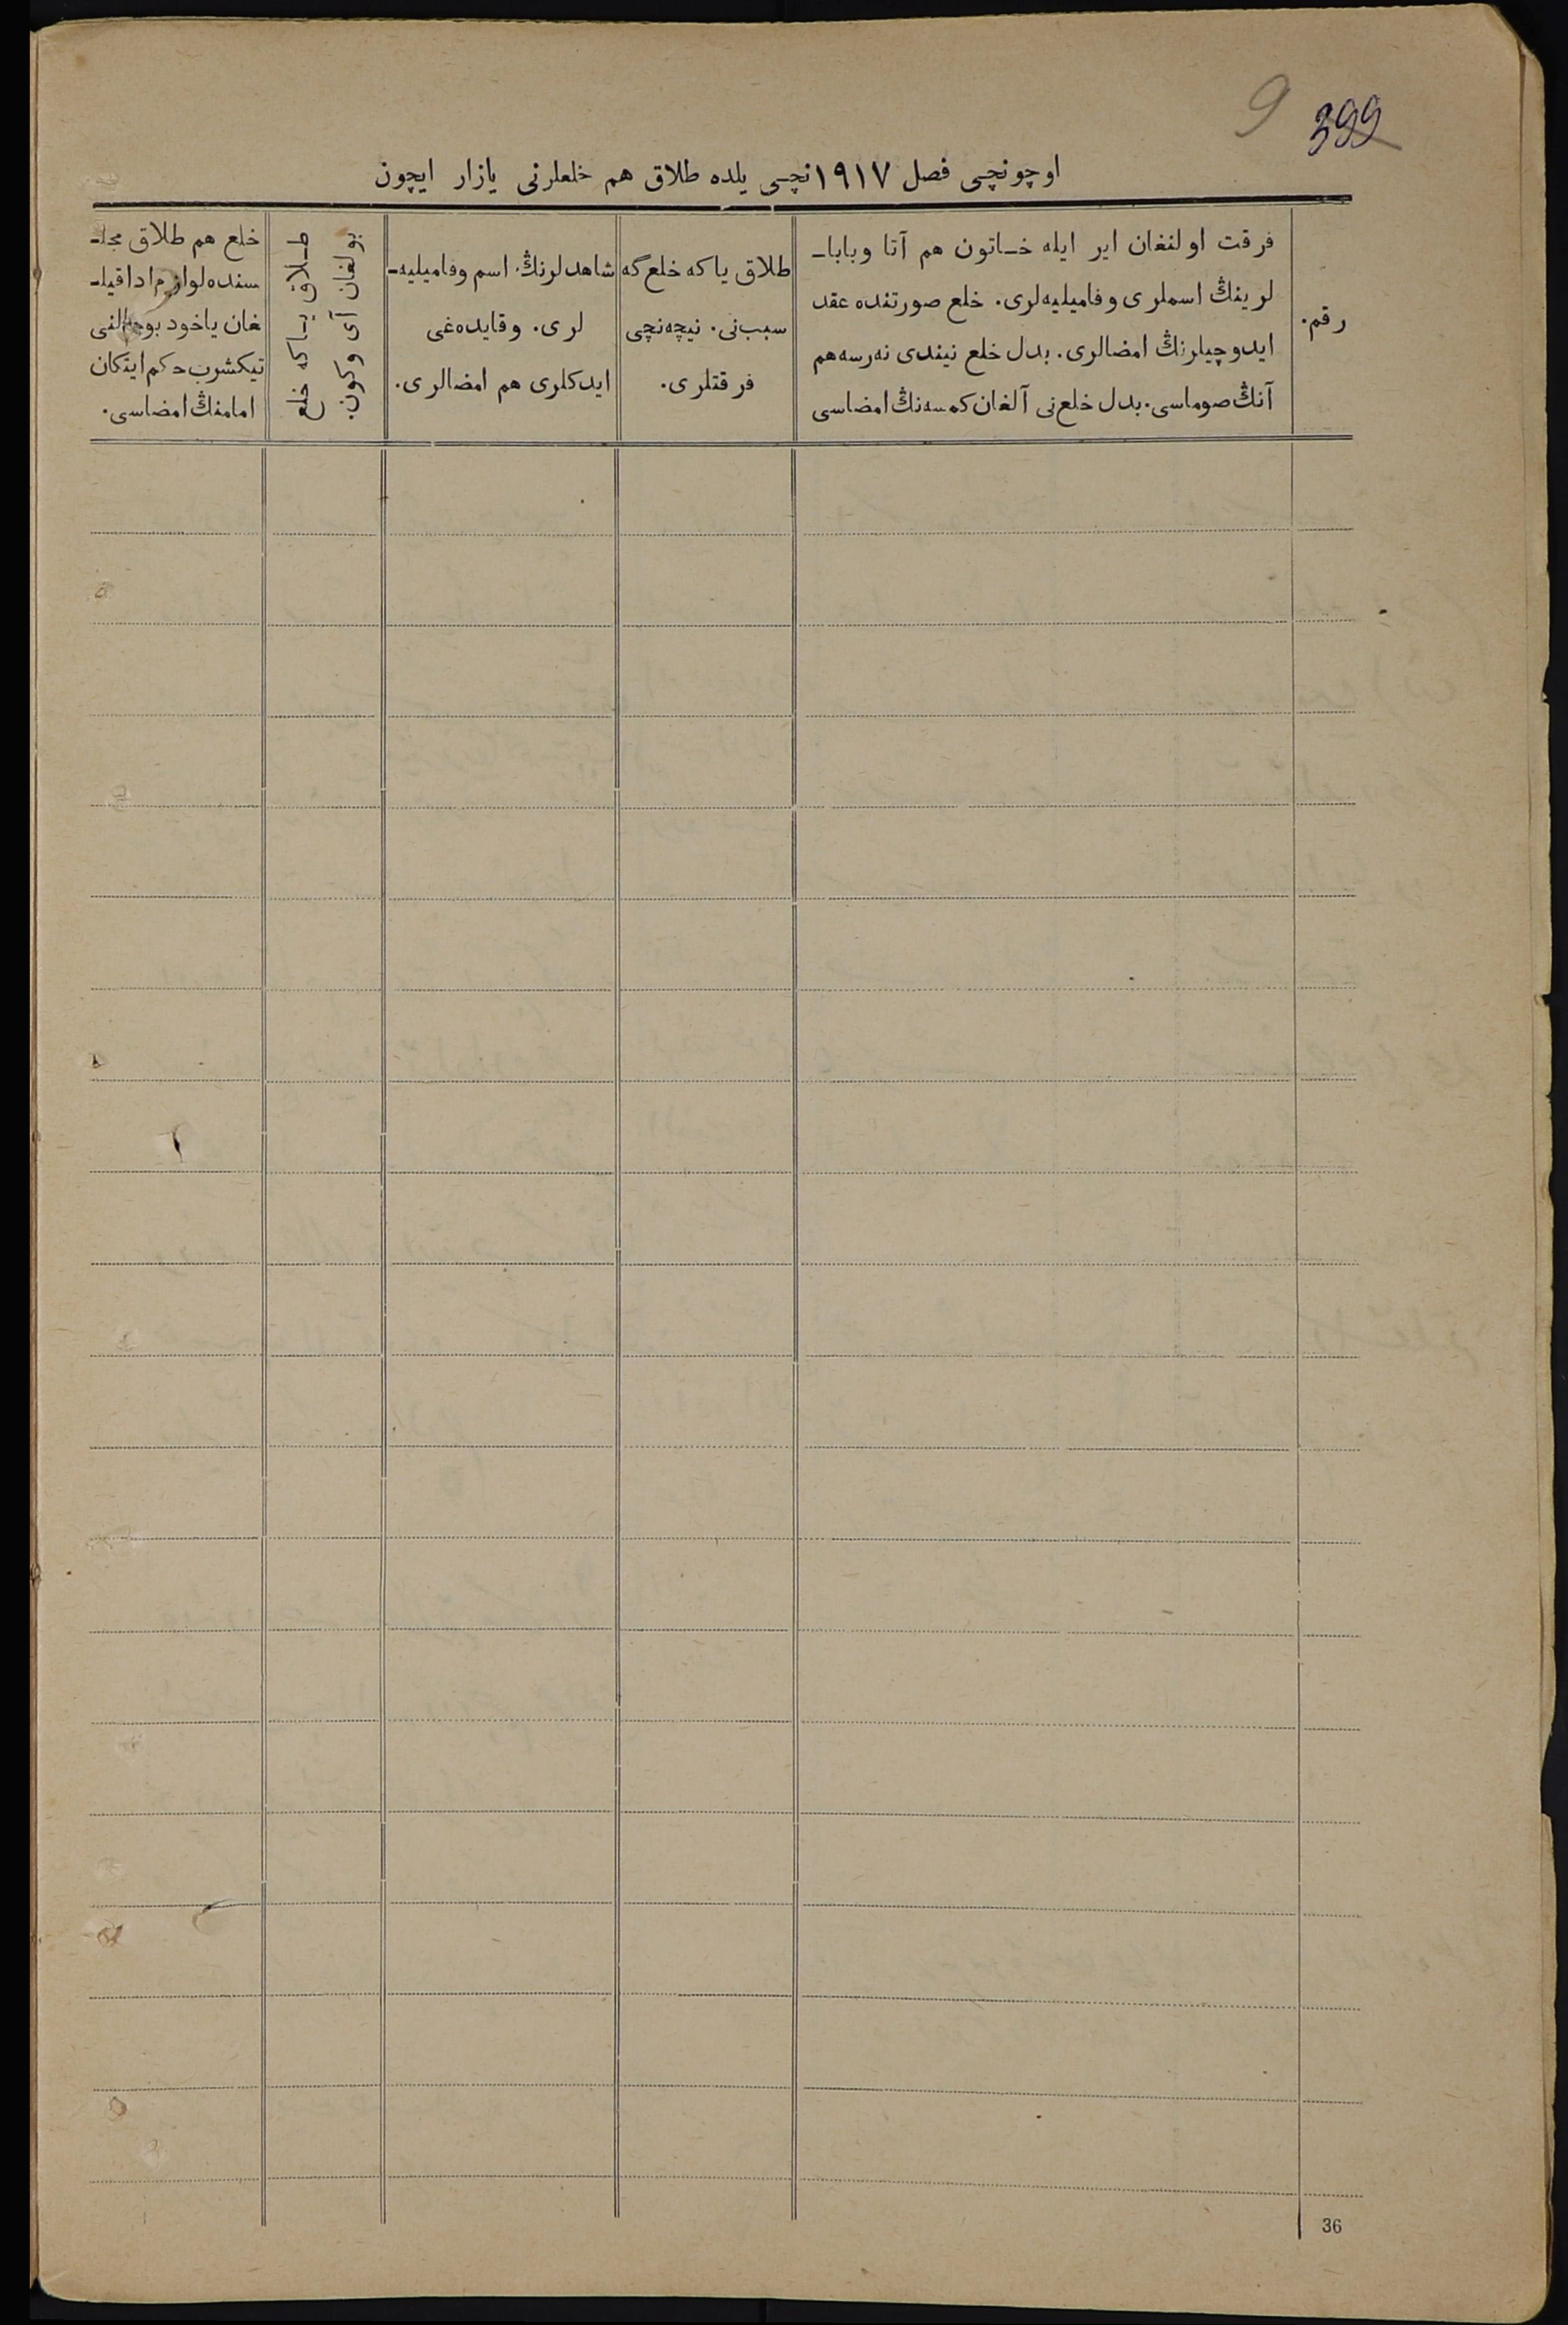 9 399
اوچونچی فصل ١٩١٧نچی یلده طلاق هم خلعلرنی یازار ایچون
رقم.
فرقت اولنغان ایر ایله خـاتون هم آتا وبابا-
لرینڭ اسملری وفامیلیه‌لری. خلع صورتنده عقد
ایدوچیلرنڭ امضالری. بدل خلع نیندی نه‌رسه‌هم
آنڭ صوماسی. بدل خلع‌نی آلغان کمسه‌نڭ امضاسی
طلاق یاکه خلع‌گه
سبب‌نی. نیچه‌نچی
فرقتلری.
شاهدلرنڭ اسم وفامیلیه-
لری. وقایده‌غی
ایدکلری هم امضالری.
طـلاق یـاکه خلع
بولغان آی وکون.
خلع هم طلاق مجلـ
سنده‌لوازم ادا قیلـ
غان یاخود بو
تیکشرب حکم ایتکان
امامنڭ امضاسی.
36